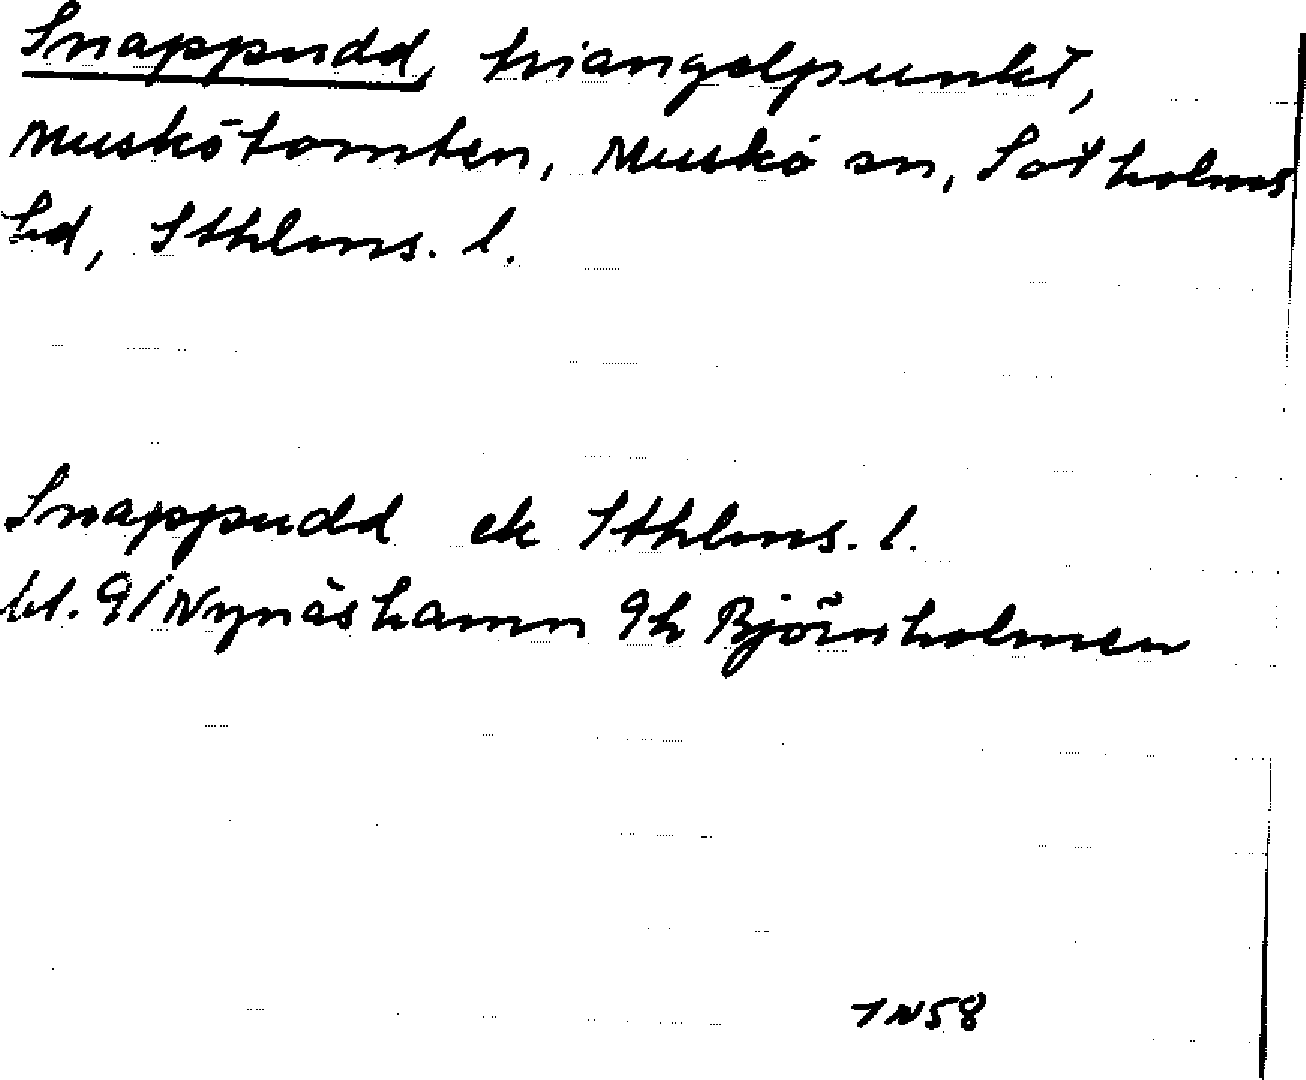 Snappudd, triangelpunkt,
Muskötomten, Muskö sn, Sotholms
hd, Sthlms. l.
Snappudd ek Sthlms. l.
bl. 91 Nynäshamn 9h Björnholmen
TN58